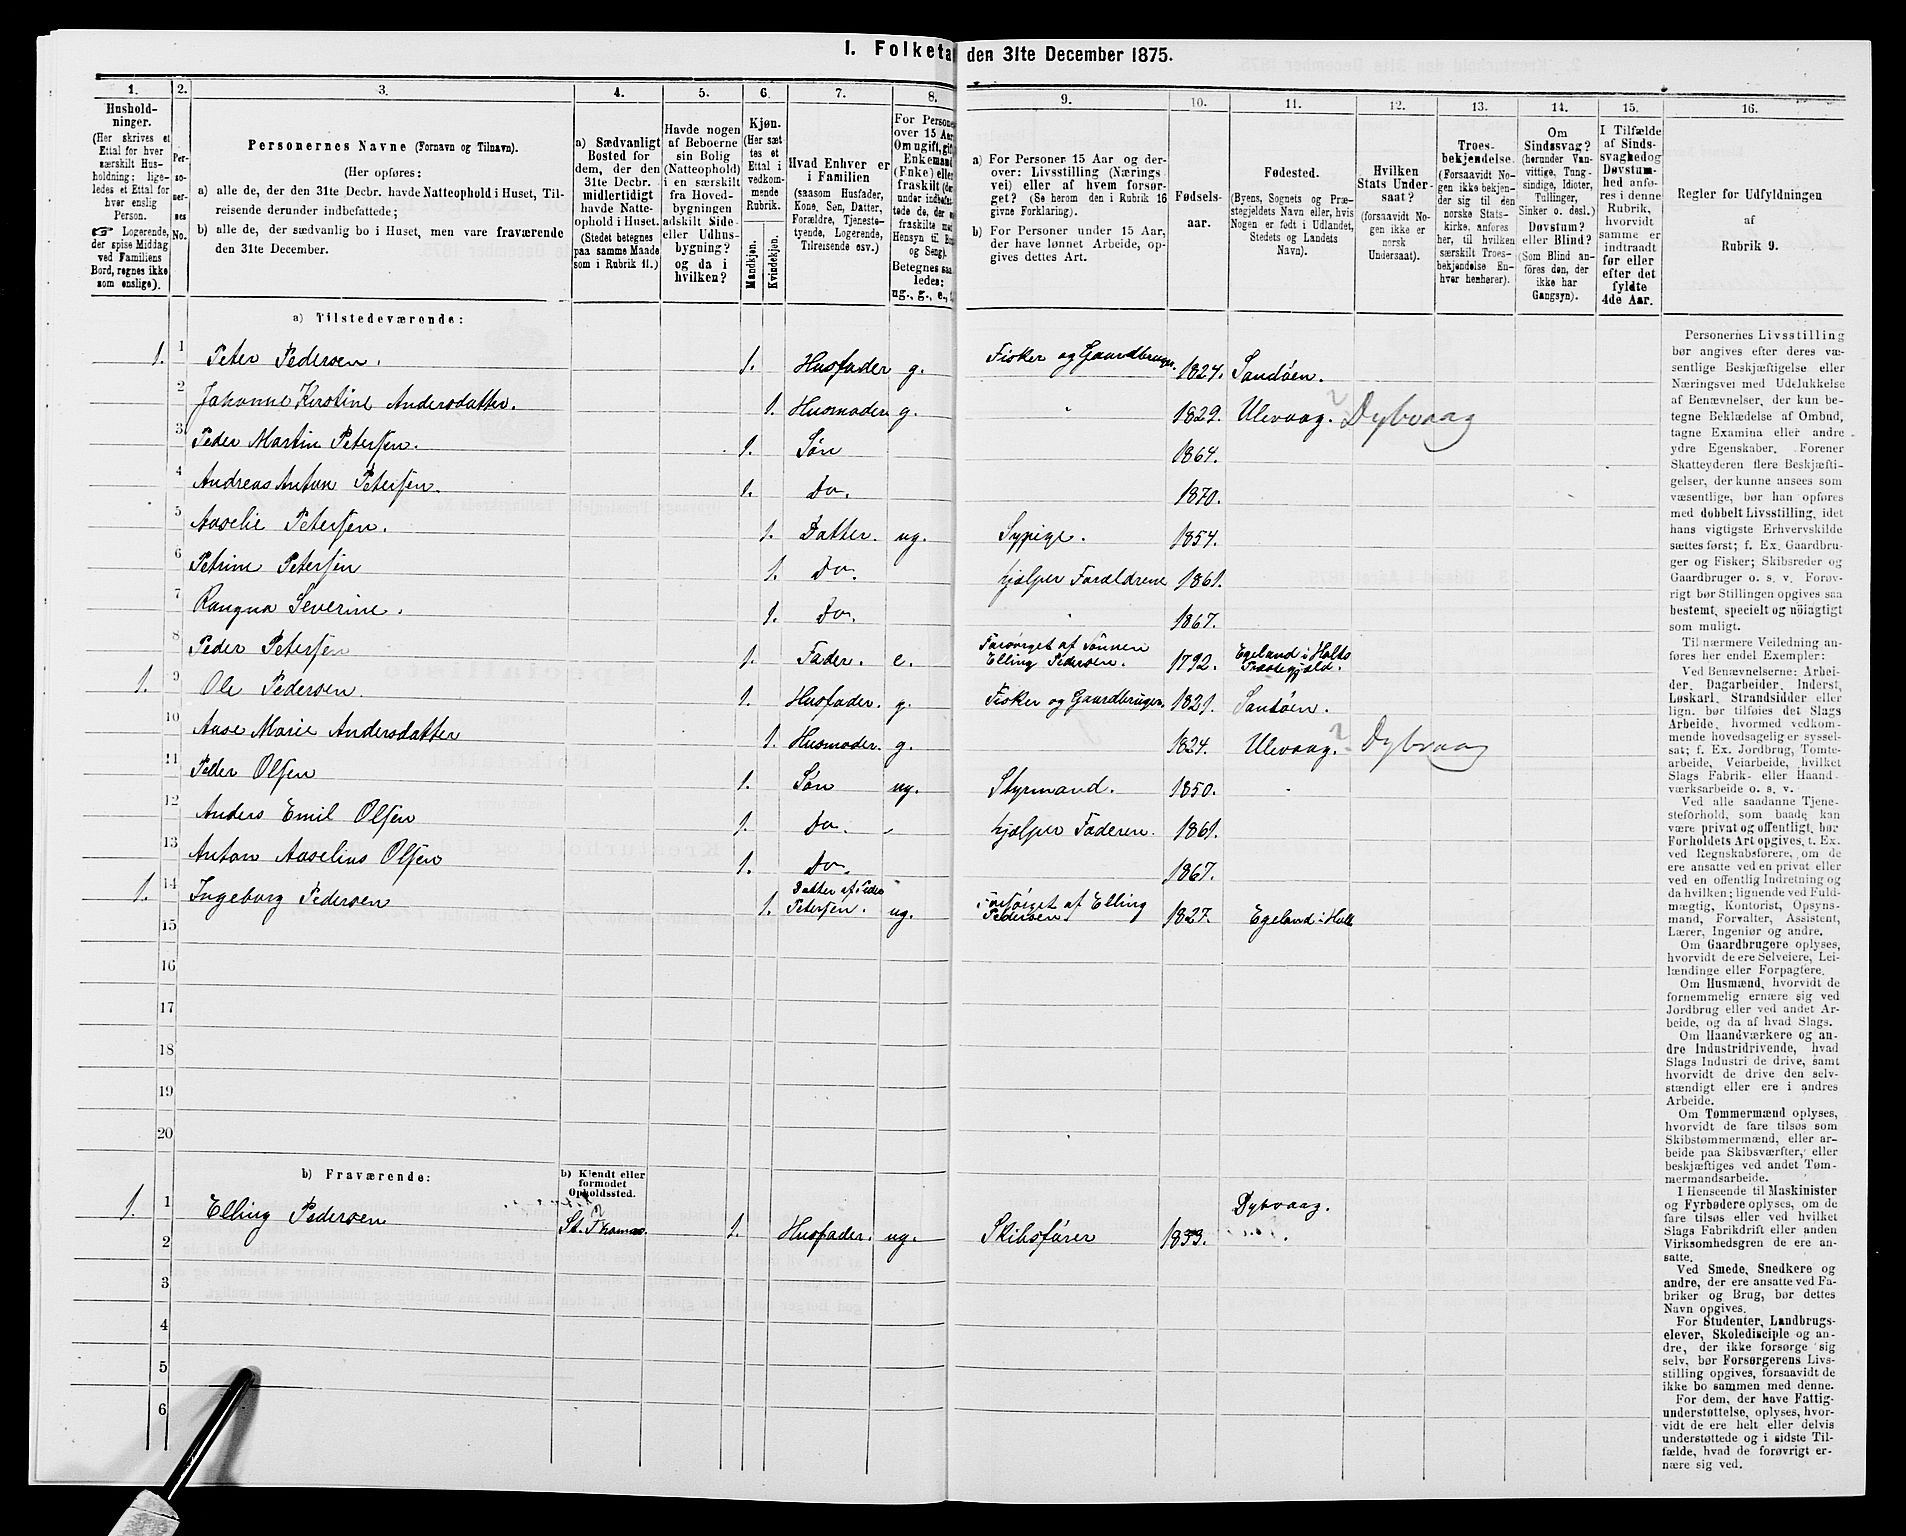 1. Folketa den 31te December 1875.
1. 2. 3. 4. 5. 6. 7. 8. 9. 10. 11. 12. 13. 14. 15. 16.
Hushold-
ninger.
(Her skrives et
Ettal for hver
særskilt Hus-
holdning; lige-
ledes et Ettal for
hver enslig
Person.
☞ Logerende,
der spise Middag
ved Familiens
Bord, regnes ikke
som enslige).
Per-
so-
ner-
nes
No.
Personernes Navne (Fornavn og Tilnavn).
(Her opføres:
a) alle de, der den 31te Decbr. havde Natteophold i Huset, Til-
reisende derunder indbefattede;
b) alle de, der sædvanlig bo i Huset, men vare fraværende
den 31te December.
a) Sædvanligt
Bosted for
dem, der den
31te Decbr.
midlertidigt
havde Natte-
ophold i Huset.
(Stedet betegnes
paa samme Maade
som i Rubrik 11.)
Havde nogen
af Beboerne
sin Bolig
(Natteophold)
i en særskilt
fra Hoved-
bygningen
adskilt Side-
eller Udhus-
bygning?
og da i
hvilken?
Kjøn.
(Her sæt-
tes et
Ettal i
vedkom-
mende
Rubrik.
Mandkjøn.
Kvindekjøn.
Hvad Enhver er
i Familien
(saasom Husfader,
Kone, Søn, Datter,
Forældre, Tjeneste-
tyende, Logerende,
Tilreisende osv.)
For Persone
over 15 Aar
Om ugift, gif
Enkemand
(Enke) elle
fraskilt (de
under indbefat-
tede de, der e
fraskilte med
Hensyn til Bo
og Seng).
Betegnes saa
ledes:
ug., g., e.,
a) For Personer 15 Aar og der-
over: Livsstilling (Nærings
vei) eller af hvem forsør-
get? (Se herom den i Rubrik 16
givne Forklaring).
b) For Personer under 15 Aar,
der have lønnet Arbeide, op-
gives dettes Art.
Fødsels-
aar.
Fødested.
(Byens, Sognets og Præ-
stegjeldets Navn eller, hvis
Nogen er født i Udlandet,
Stedets og Landets
Navn).
Hvilken
Stats Under-
saat?
(forsaavidt No-
gen ikke er
norsk
Undersaat).
Troes-
bekjendelse.
(Forsaavidt No-
gen ikke bekjen-
der sig til den
norske Stats-
kirke, anføres
her, til hvilken
særskilt Troes-
bekjendelse En-
hver henhører).
Om
Sindssvag?
(herunder Van-
vittige, Tung-
sindige, Idioter,
Tullinger,
Sinker o. desl.)
Døvstum?
eller Blind?
(Som Blind an-
føres den, der
ikke har
Gangsyn).
I Tilfælde
af Sinds-
svaghedog
Døvstum-
hed anfø-
res i denne
Rubrik,
hvorvidt
samme er
indtraadt
før eller
efter det
fyldte
4de Aar.
Regler for Udfyldningen
af
Rubrik 9.
a) Tilstedeværende:
1. 1 Peter Pedersen. 1. Husfader g. Fisker og Gaardbruger. 1824. Sandøen.
2 Johanne Kirstine Andersdatter. 1. Husmoder g. " 1829. Ulevaag. ? Dybvaag
3 Peder Martin Petersen. 1. Søn 1864.
4 Andreas Anton Petersen. 1. Do. 1870.
5 Aaselie Petersen. 1. Datter. ug. Sypige. 1854.
6 Petrine Petersen 1. Do. hjælper Forældrene 1861.
7 Rangna Severine. 1. Do. " 1867.
8 Peder Petersen 1. Fader. e. Forsørget af Sønnen Elling Pedersen. 1792. Egeland i Holts Præstegjæld.
1. 9 Ole Pedersen. 1. Husfader. g. Fisker og Gaardbruger. 1821. Sandøen.
10 Aase Marie Andersdatter 1. Husmoder. g. 1824. Ulevaag. ? Dybvaag
11 Peder Olsen 1. Søn ug. Styrmand. 1850.
12 Anders Emil Olsen 1. Do. hjælper Faderen. 1861.
13 Anton Aaselius Olsen 1. Do. 1867.
1. 14 Ingeborg Pedersen 1. Datter af Peder Petersen. ug. Forsørget af Elling Pedersen. 1827. Egeland i Holt
15
16
17
18
19
20
b) Fraværende:
b) Kjendt eller
formodet
Opholdssted.
1. 1 Elling Pedersen ? St. Thomas. 1. Husfader. ug. Skibsfører 1833. Dybvaag.
2
3
4
5
6
Personernes Livsstilling
bør angives efter deres væ-
sentlige Beskjæftigelse eller
Næringsvei med Udelukkelse
af Benævnelser, der kun be-
tegne Beklædelse af Ombud,
tagne Examina eller andre
ydre Egenskaber. Forener
Skatteyderen flere Beskjæfti-
gelser, der kunne ansees som
væsentlige, bør han opføres
med dobbelt Livsstilling, idet
hans vigtigste Erhvervskilde
sættes først; f. Ex. Gaardbru-
ger og Fisker; Skibsreder og
Gaardbruger o. s. v. Forøv-
rigt bør Stillingen opgives saa
bestemt, specielt og nöiagtigt
som muligt.
Til nærmere Veiledning an-
føres her endel Exempler:
Ved Benævnelserne: Arbei-
der, Dagarbeider, Inderst,
Løskarl, Strandsidder eller
lign. bør tilföies det Slags
Arbeide, hvormed vedkom-
mende hovedsagelig er syssel-
sat; f. Ex. Jordbrug, Tomte-
arbeide, Veiarbeide, hvilket
Slags Fabrik- eller Haand-
værksarbeide o. s. v.
Ved alle saadanne Tjene-
steforhold, som baade kan
være privat og offentligt, bør
Forholdets Art opgives, t. Ex.
ved Regnskabsførere, om de
ere ansatte ved en privat eller
ved en offentlig Indretning og
da hvilken; lignende ved Fuld-
mægtig, Kontorist, Opsyns-
mand, Forvalter, Assistent,
Lærer, Ingeniør og andre.
Om Gaardbrugere oplyses,
hvorvidt de ere Selveiere, Lei-
lændinge eller Forpagtere.
Om Husmænd, hvorvidt de
fornemmelig ernære sig ved
Jordbrug eller ved andet Ar-
beide, og da af hvad Slags.
Om Haandværkere og an-
dre Industridrivende, hvad
Slags Industri de drive, samt
hvorvidt de drive den selv-
stændigt eller ere i andres
Arbeide.
Om Tømmermænd oplyses,
hvorvidt de fare tilsøs som
Skibstømmermænd, eller ar-
beide paa Skibsværfter, eller
beskjæftiges ved andet Tøm-
mermandsarbeide.
I Henseende til Maskinister
og Fyrbødere oplyses, om de
fare tilsøs eller ved hvilket
Slags Fabrikdrift eller anden
Virksomhedsgren de ere an-
satte.
Ved Smede, Snedkere og
andre, der ere ansatte ved Fa-
briker og Brug, bør dettes
Navn opgives.
For Studenter, Landbrugs-
elever, Skoledisciple og an-
dre, der ikke forsørge sig
selv, bør Forsørgerens Livs-
stilling opgives, forsaavidt de
ikke bo sammen med denne.
For dem, der have Fattig-
understøttelse, oplyses, hvor-
vidt de ere helt eller delvis
understøttede og i sidste Til-
fælde, hvad de forøvrigt er-
nære sig ved.